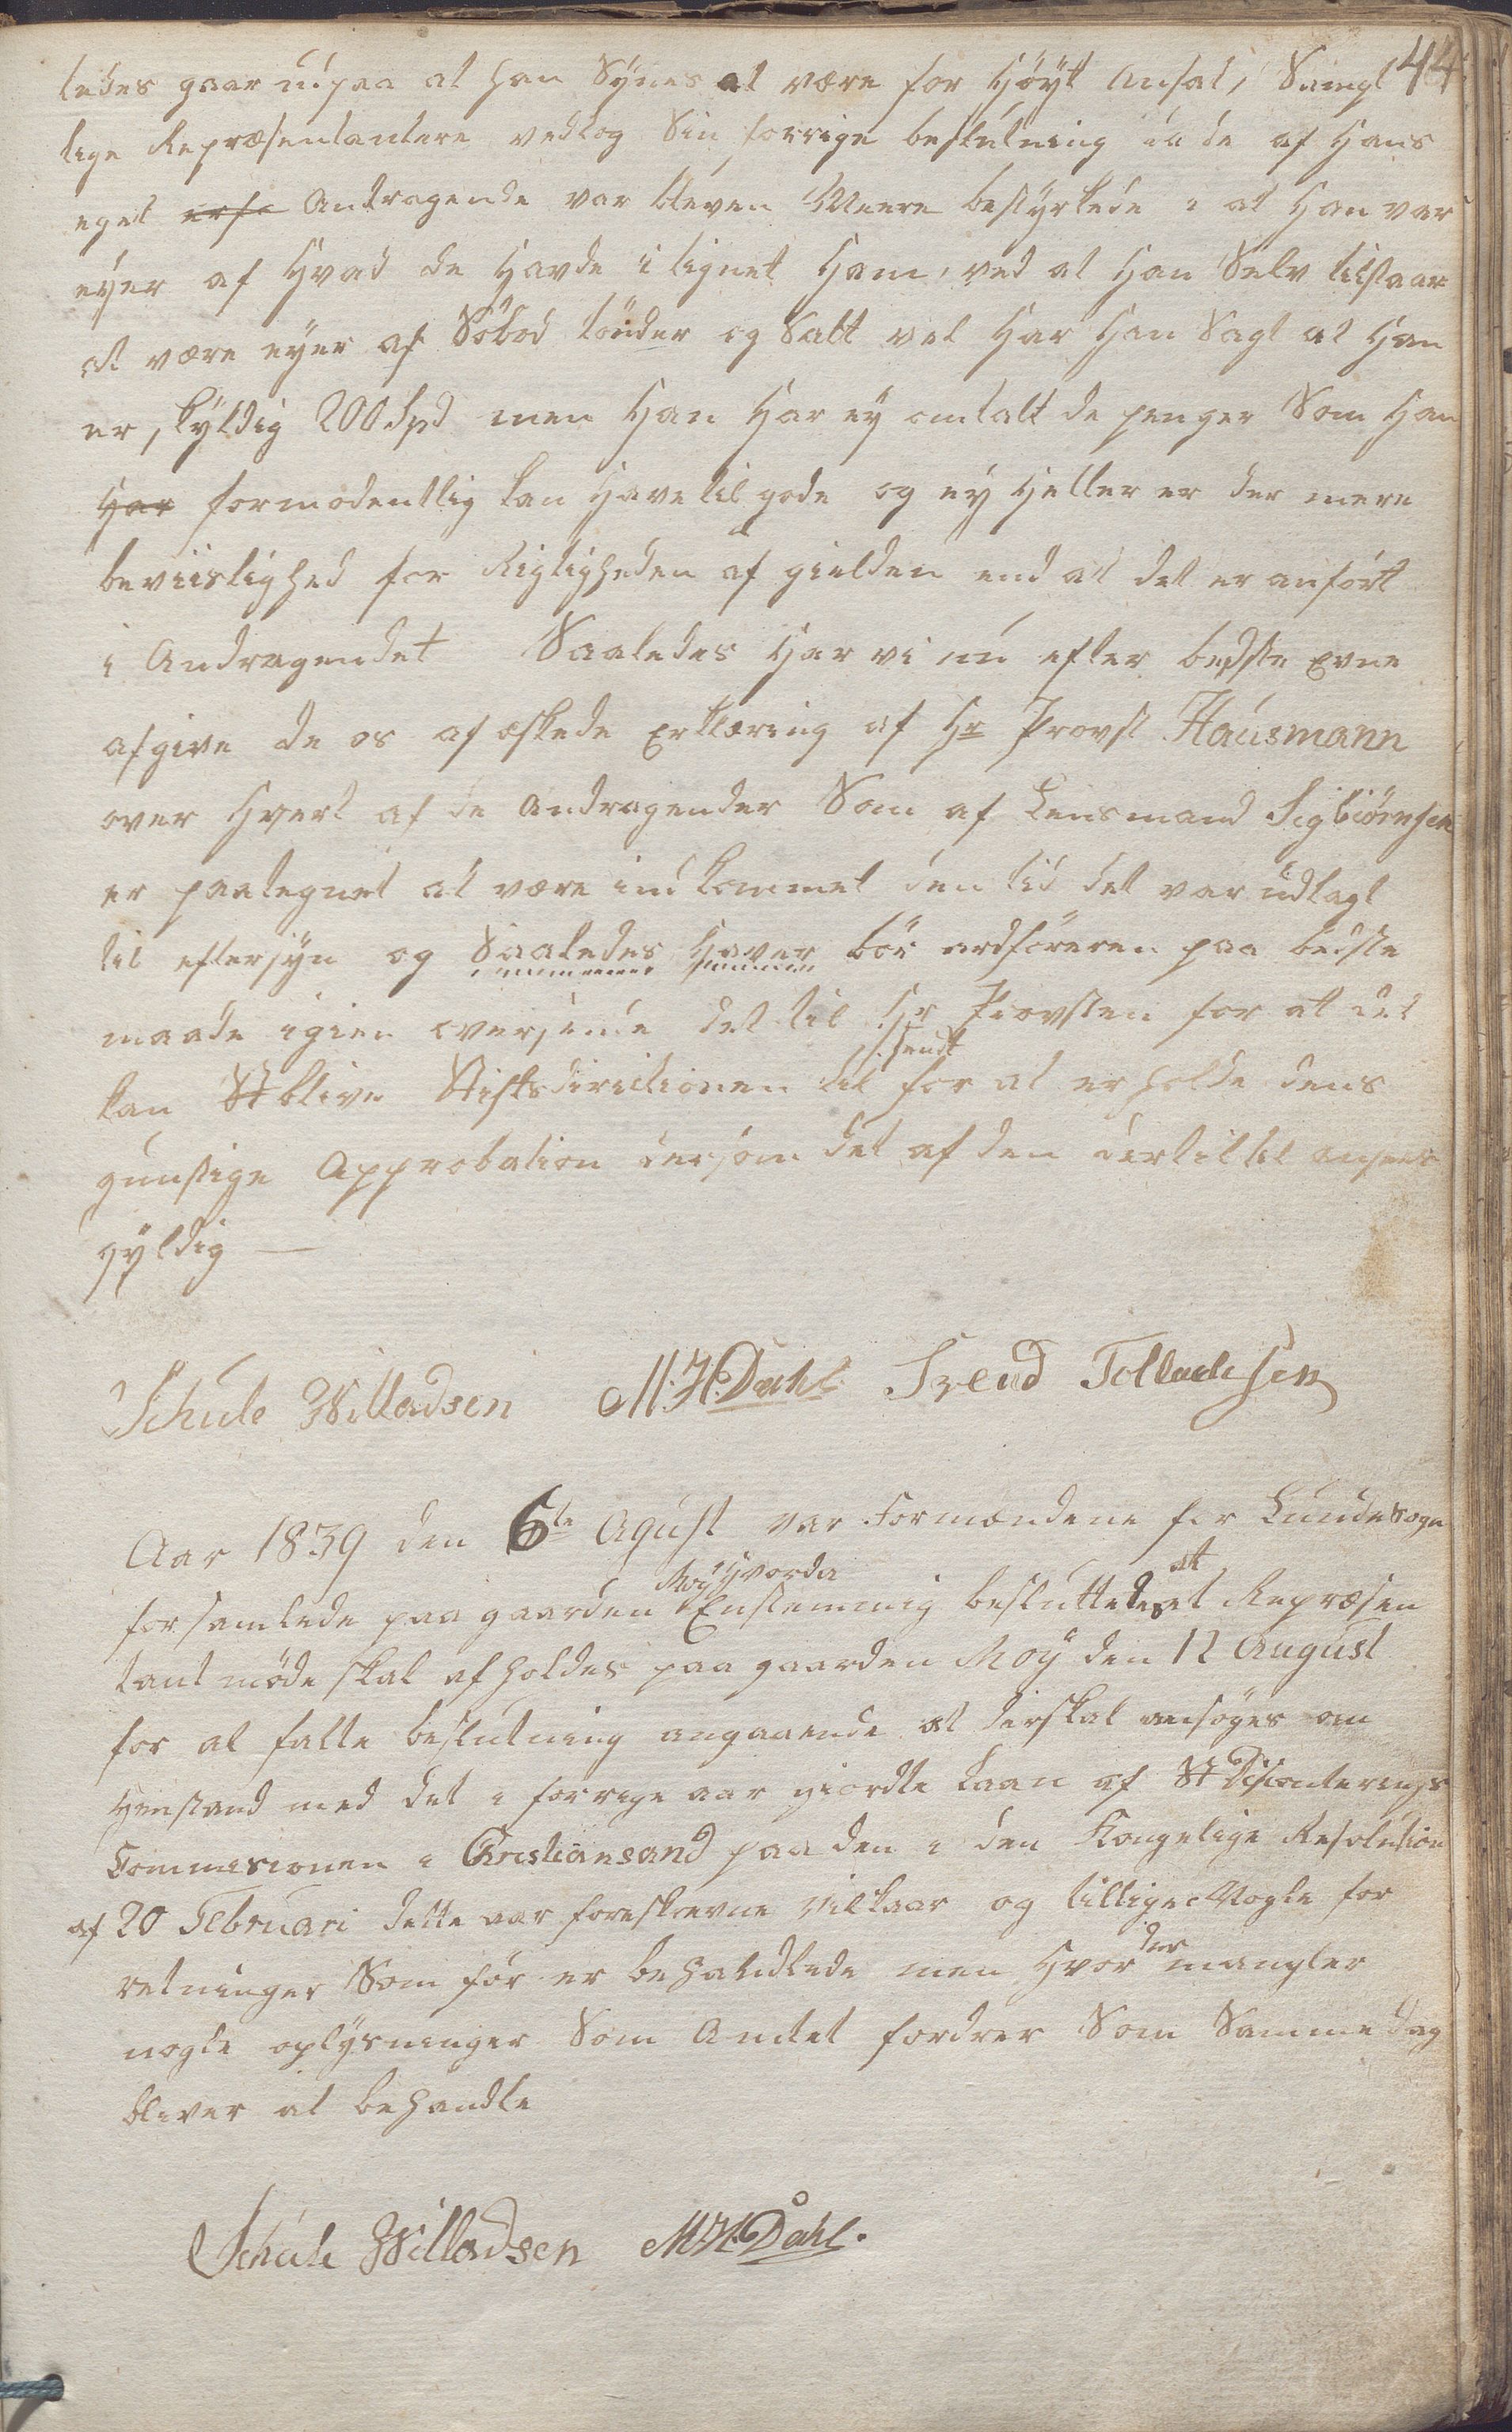 44
ledes gaar ud paa at han Synes at være for Høyt Ansat, Sampt
lige Repræsentantere vedtog Sin forrige beslutning da de af Hans
eget Andragende var bleven Meere bestyrkede i at Han var
eyer af Hvad de Havde i lignet Ham, ved at Han Selv tilstaar
at være eyer af Söbod tönder og Salt vel Har Han Sagt at Han
er skyldig 200 Spd men Han Har ey omtalt de penger Som Han
Har formodentlig kan Have til gode og ey Heller er der mere
beviislighed for Rigtigheden af gielden end at det er anfört
i Andragendet Saaledes Har vi nu efter bedste Evne
afgive de os af æskede Erklæring af Hr Provst Hausmann
over Hvert af de Andragender Som af Lensmand Sigbiörnsen
er paategnet at være indkommet den tid det var udlagt
til eftersyn og Saaledes Haver bör ordföreren paa bedste
maade igien oversende det til Hr Provsten for at det
sendt
kan St blive Stiftsdirictionen til for at erholde dens
gunstige Approbation dersom det af den dertil ansees
gyldig —
Schule Willadsen M. H. Dahl Svend Tolla&shy;ksen
Aar 1839 den 6te Agust var Formændene for Lundesogn
Moy Hvorda at
forsamlede paa gaarden Enstemmig besluttedes et Repræsen
tant møde skal afholdes paa gaarden Moy den 12 August
for at fatte beslutning angaaende at der skal ansöges om
Henstand med det i forrige aar giordte Laan af St Disconterings
Commisionen i Christiansand paa den i den Kongelige Resolution
af 20 Februari dette aar foreskrevne vilkaar og tillige Nogle for
der
retninger Som för er behandlede men Hvor mangler
nogle oplysninger Som Amtet fordrer Som Samme dag
bliver at behandle
Schule Willadsen M H. Dahl.